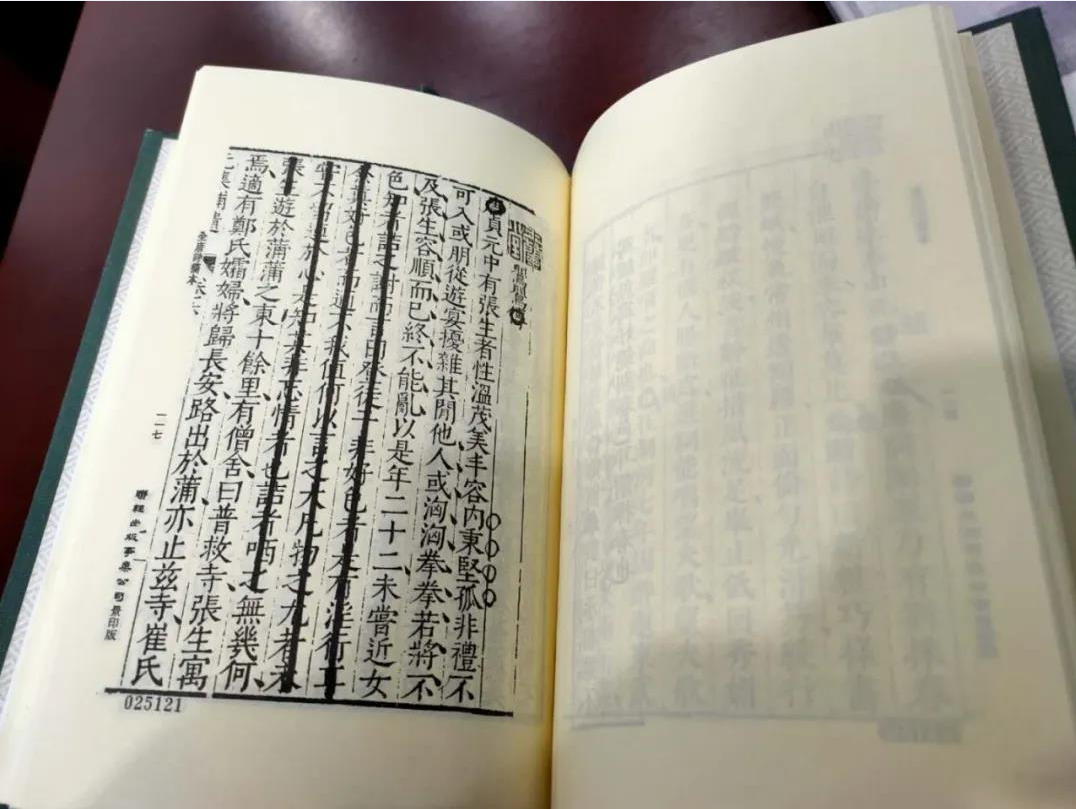 貞元中有張生者性溫茂美丰容內秉堅孤非禮不
可入或朋從遊宴擾雜其閒他人或洶洶拳拳若將不
及張生容順而已終不能亂以是年二十二未嘗近女
色知者詰之謝而言曰登徒子非好色者是有淫行耳
余真好色者而適不我值何以言之大凡物之尤者未
嘗不留連於心是知其非忘情者也詰者哂之無幾何
張生遊於蒲蒲之東十餘里有僧舍曰普救寺張生寓
焉適有鄭氏孀婦將歸長安路出於蒲亦止茲寺崔氏
元集補遺
全唐詩稿本
二一七
聯經出版事業公司 景印版
025121